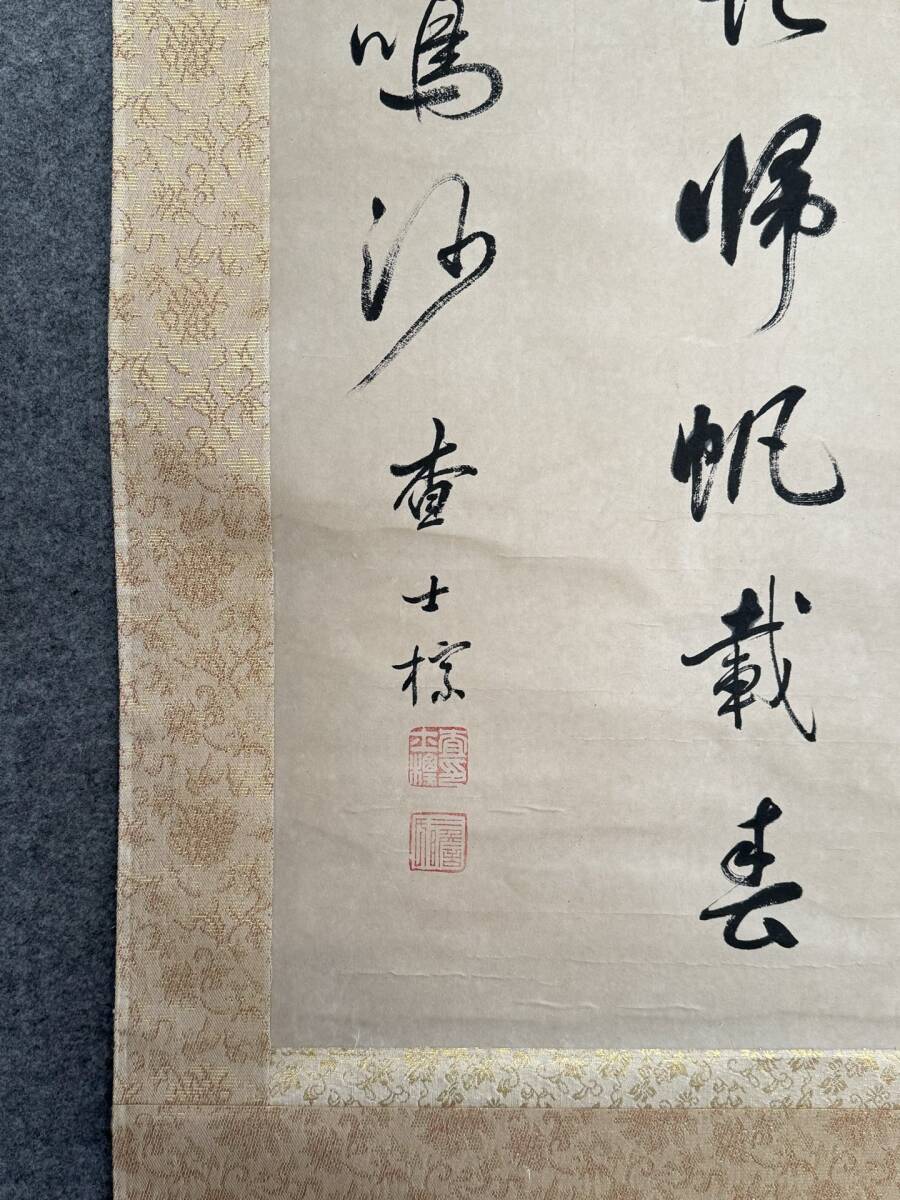 歸帆載春
鳴沙
查士標